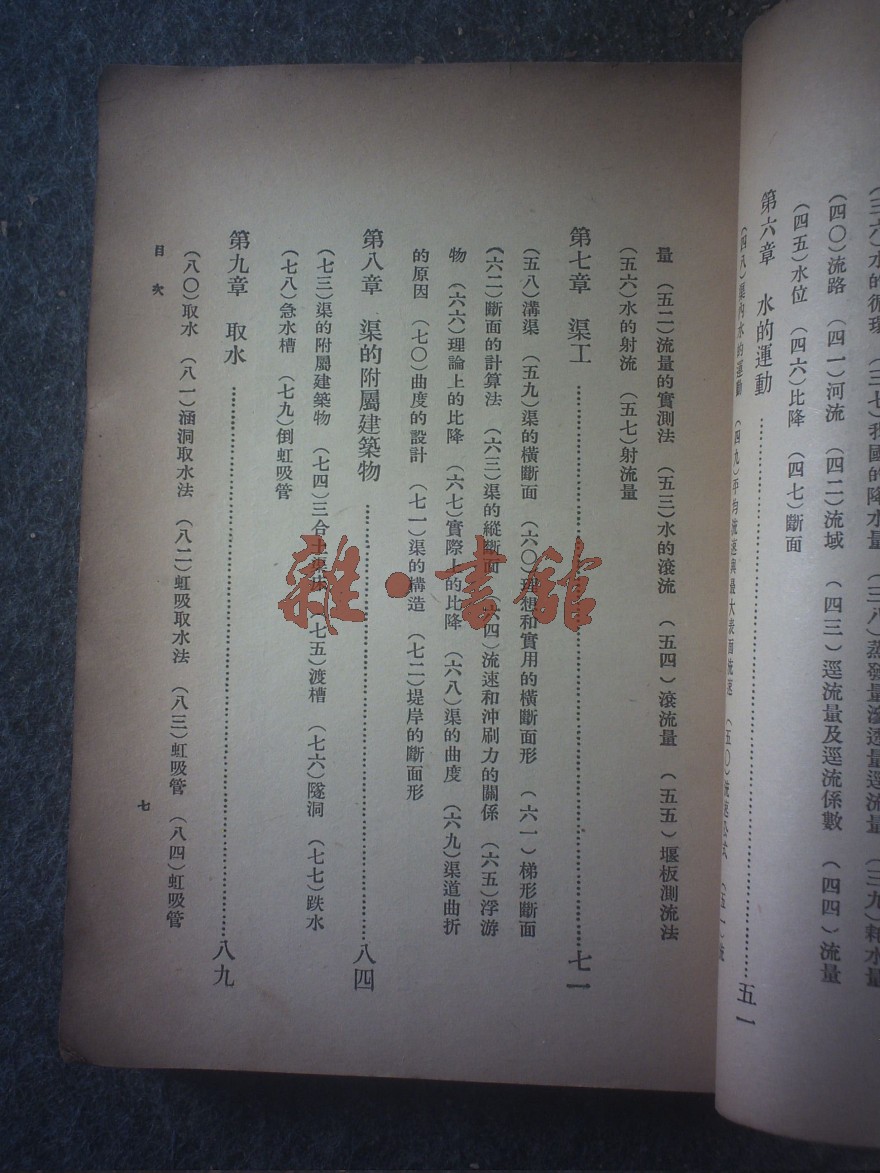 (三六)水的循環 (三七)我國的降水量 (三八)蒸發量滲透量逕流量 (三九)耗水量
(四〇)流路 (四一)河流 (四二)流域 (四三)逕流量及逕流係數 (四四)流量
(四五)水位 (四六)比降 (四七)斷面
第六章 水的運動…………五一
(四八)渠內水的運動 (四九)平均流速與最大表面流速 (五〇)流速公式 (五一)流
量 (五二)流量的實測法 (五三)水的滾流 (五四)滾流量 (五五)堰板測流法
(五六)水的射流 (五七)射流量
第七章 渠工…………七一
(五八)溝渠 (五九)渠的橫斷面 (六〇)理想和實用的橫斷面形 (六一)梯形斷面
(六二)斷面的計算法 (六三)渠的縱斷面 (六四)流速和沖刷力的關係 (六五)浮游
物 (六六)理論上的比降 (六七)實際上的比降 (六八)渠的曲度 (六九)渠道曲折
的原因 (七〇)曲度的設計 (七一)渠的構造 (七二)堤岸的斷面形
第八章 渠的附屬建築物…………八四
(七三)渠的附屬建築物 (七四)三合土 (七五)渡槽 (七六)隧洞 (七七)跌水
(七八)急水槽 (七九)倒虹吸管
第九章 取水…………八九
(八〇)取水 (八一)涵洞取水法 (八二)虹吸取水法 (八三)虹吸管 (八四)虹吸管
目次 七
雜·書館